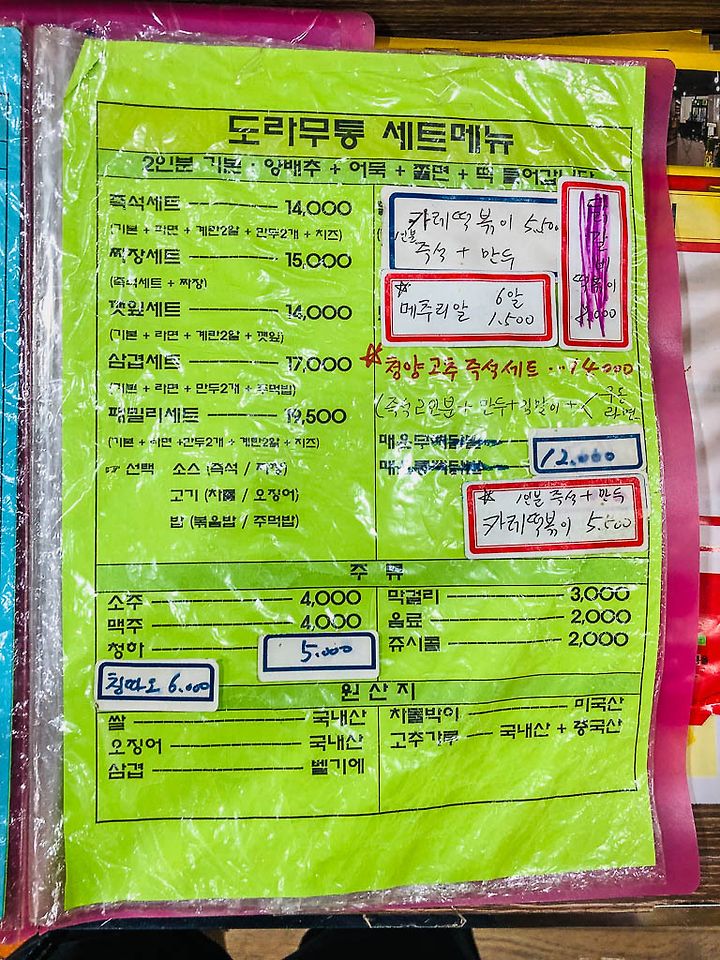 도라무통 세트메뉴
2인분 기본 · 양배추 + 어묵 + 쫄면 + 떡 들어갑니다
즉석세트 14,000
(기본 + 라면 + 계란2알 + 만두2개 + 치즈)
짜장세트 15,000
(즉석세트 + 짜장)
깻잎세트 14,000
(기본 + 라면 + 계란2알 + 깻잎)
삼겹세트 17,000
(기본 + 라면 + 만두2개 + 주먹밥)
패밀리세트 19,500
(기본 + 라면 +만두2개 + 계란2알 + 치즈)
☞ 선택 소스 (즉석 / 짜장)
고기 (차돌 / 오징어)
밥 (볶음밥 / 주먹밥)
카레떡볶이 5,500
1인분 즉석 + 만두
떡볶이
☆
메추리알 6알
1.500
☆청양고추 즉석세트 ...14000
(즉석2인분 + 만두 + 김말이 + < 우동
라면
12,000
☆ 1인분 즉석 + 만두
카레떡볶이 5.500
주 류
소주 4,000
맥주 4,000
청하 5.000
칭따오 6.000
막걸리 3,000
음료 2,000
쥬시쿨 2,000
원 산 지
쌀 국내산
오징어 국내산
삼겹 벨기에
차돌박이 미국산
고추가루 국내산 + 중국산